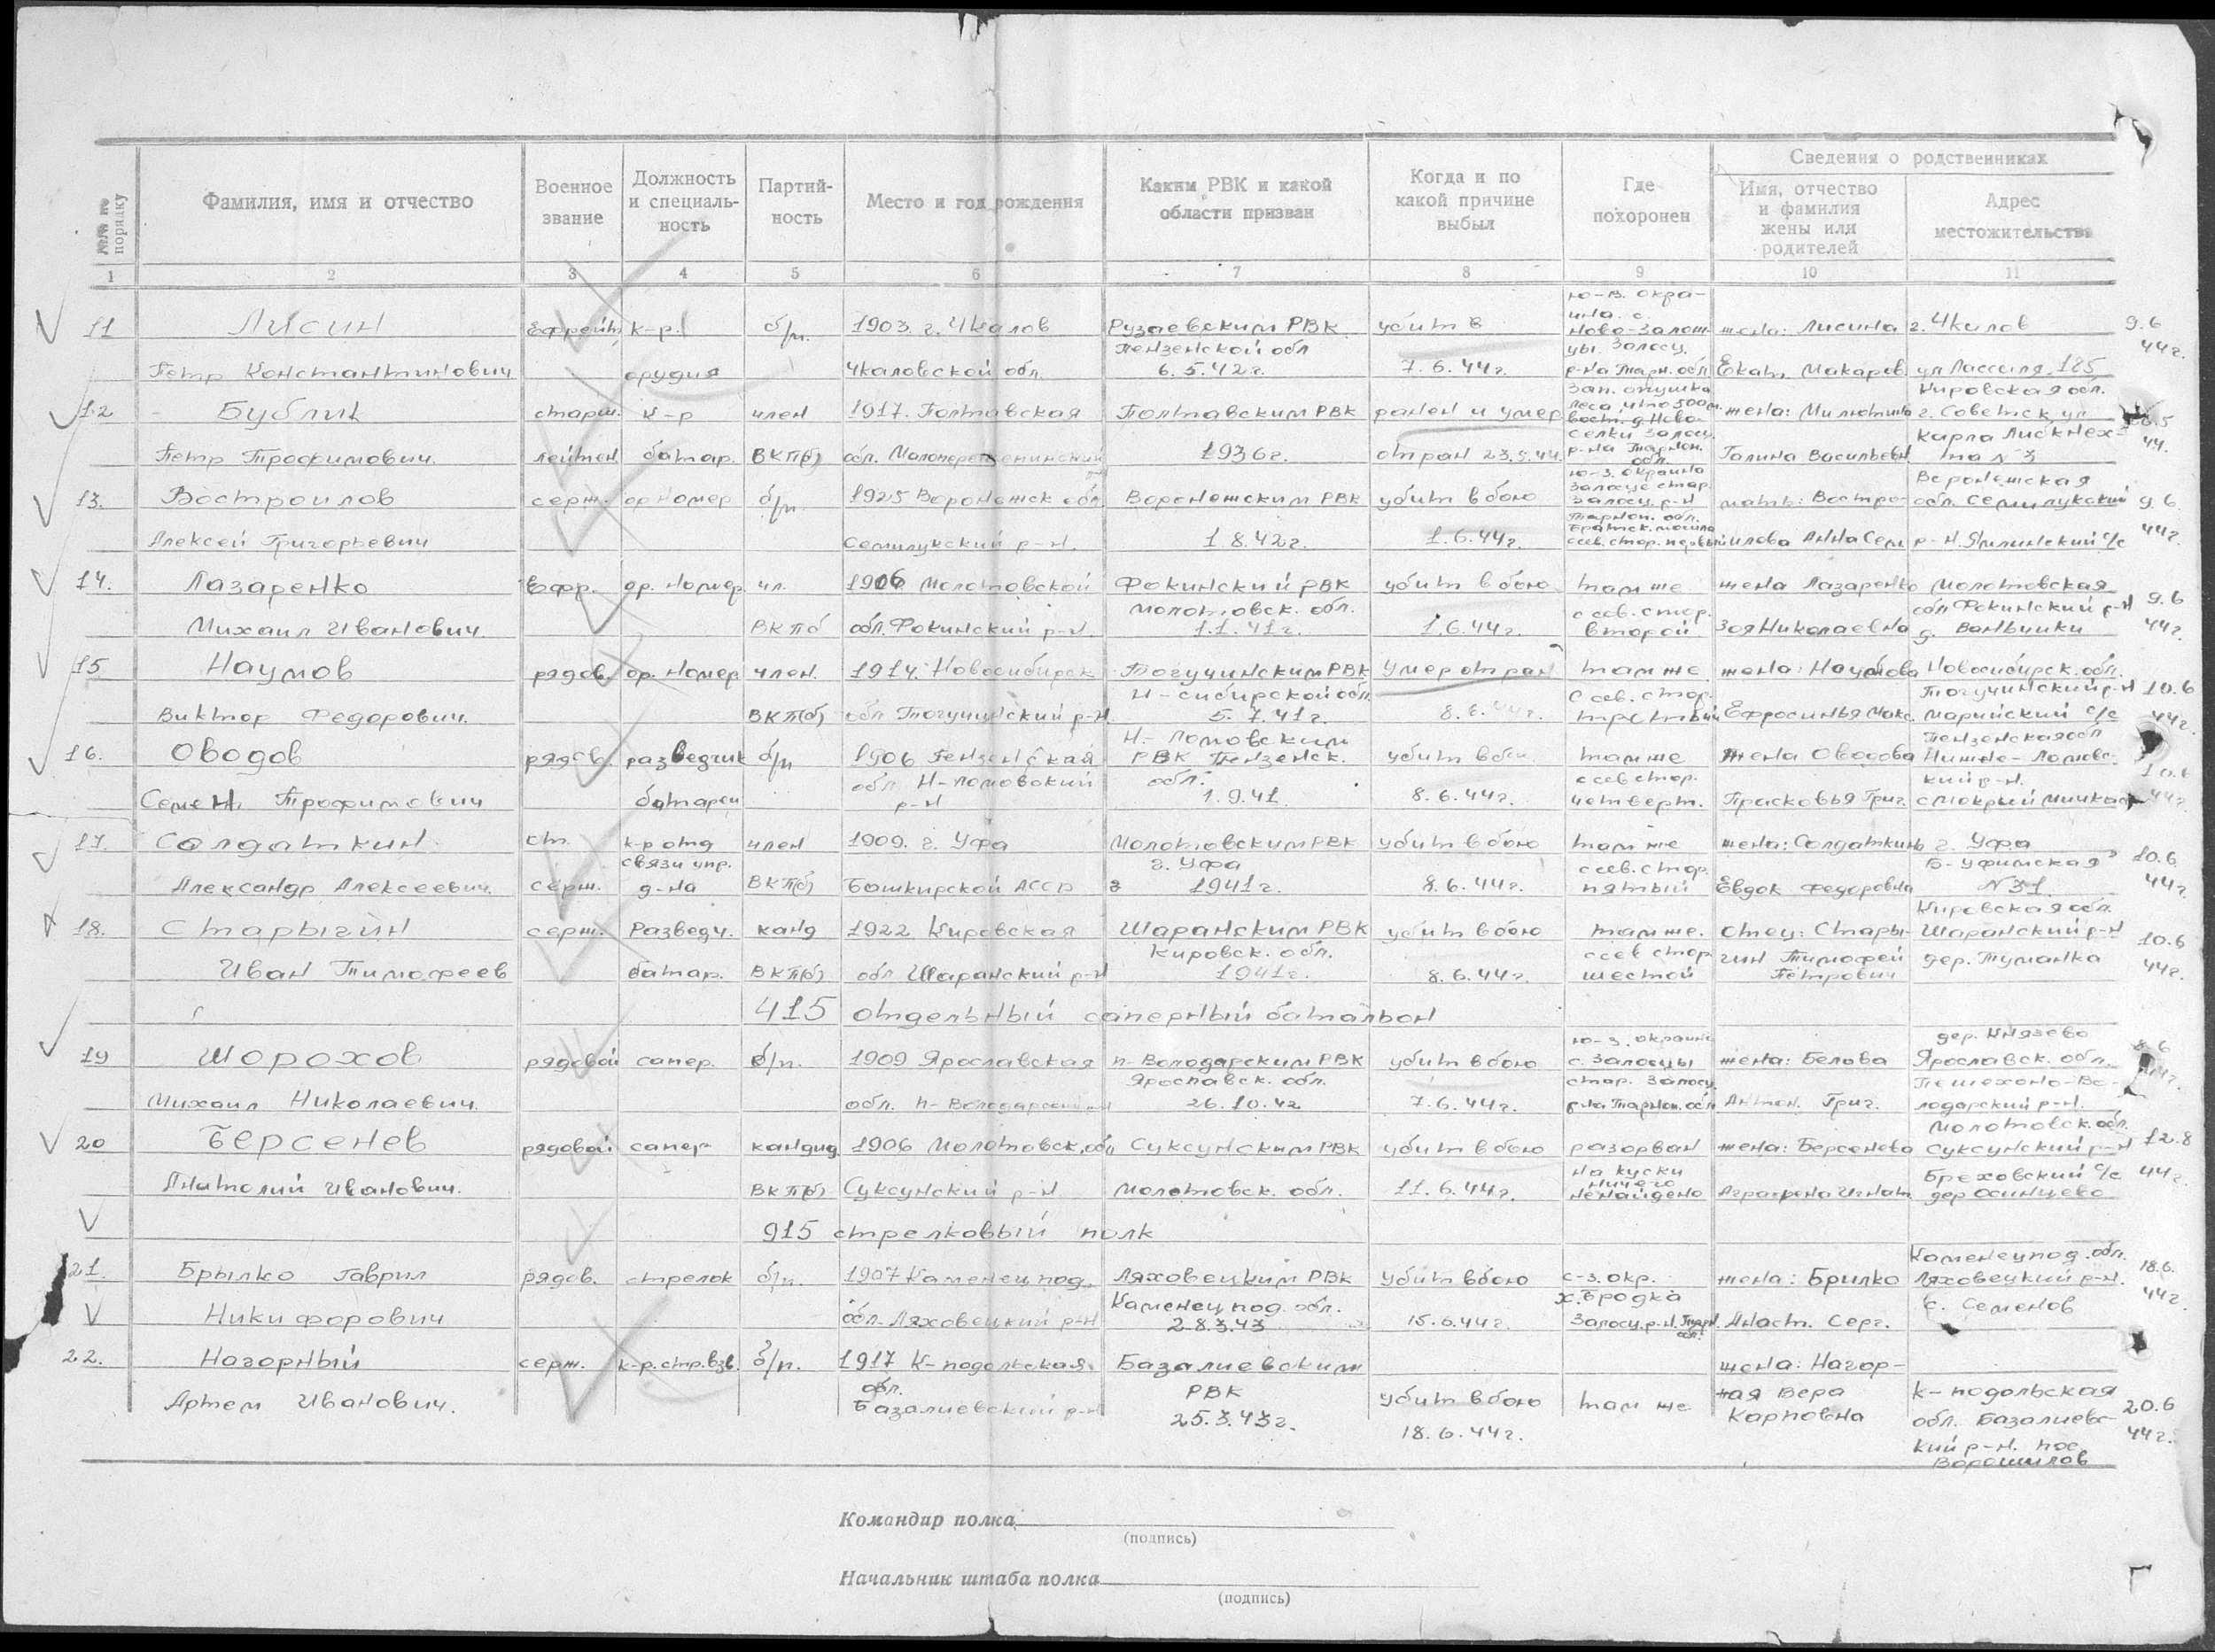 №№ по порядку
Фамилия, имя и отчество
Военное звание
Должность и специаль-ность
Партий-ность
Место и год рождения
Каким РВК и какой области призван
Когда и по какой причине выбыл
Где похоронен
Сведения о родственниках
Имя, отчество и фамилия жены или родителей
Адрес местожительства
1 2 3 4 5 6 7 8 9 10 11
ю-в. окра-
ина. с.
11 Лисин Ефрейт. к-р. б/п. 1903. г. Чкалов Рузаевским РВК убит в Ново-Залож- жена: Лисина г. Чкалов 9.6
Пензенской обл цы. Залосц. 44г.
Петр Константинович орудия Чкаловской обл. 6.5.42г. 7.6.44г. р-на Тарн. обл. Екат. Макаров. ул Лассаля 125
Зап. опушка Кировская обл.
леса, что 500м.
12 Бублик старш. к-р член 1917. Полтавская Полтавским РВК ранен и умер вост. д. Ново- жена: Милютина г. Советск, ул
селки Залосц. Карла Либкнех- 44.
Петр Трофимович. лейтен батар. ВКП(б) обл. 1936г. от ран 23.5.44 р-на Тарноп. обл. Галина Васильевн та № 3
ю-з. окраина Воронежская
Залосце стар.
13. Востроилов серж. ор номер б/п. 1925 Воронежск обл. Воронежским РВК убит в бою Залосц. р-н мать: Востро- обл. Семилукский 9.6
Тарноп. обл.
Братск. могила 44г.
Алексей Григорьевич Семилукский р-н. 1 8.42г. 1.6.44г. сев. стор. первый илова Анна Сем р-н. с/с
14. Лазаренко Ефр. ор. номер. чл. 1906 Молотовской Фокинский РВК убит в бою там же жена Лазаренко Молотовская
Молотовск. обл. с сев. стор. обл Фокинский р-н 9.6
Михаил Иванович. ВКПб обл. Фокинский р-н. 1.1.41г. 1.6.44г. второй Зоя Николаевна д. Ваньчики 44г.
15 Наумов рядов. ор. номер член. 1914. Новосибирск Тогучинским РВК умер от ран там же жена: Наумова Новосибирск. обл.
Н-сибирской обл. с сев. стор. Тогучинский р-н 10.6
Виктор Федорович. ВКП(б) обл Тогучинский р-н 5.7.41г. 8.6.44г. третьий Ефросинья Макс. Марийский с/с 44г.
Н.-Ломовским Пензенская обл
16. Оводов рядов. разведчик б/п 1906 Пензенская РВК Пензенск. убит в бою там же жена Оводова Нижне-Ломовс-
обл Н-Ломовский обл. с сев стор. кий р-н. 10.6
Семен. Трофимович батареи р-н 1.9.41. 8.6.44г. четверт. Прасковья Григ. с Мокрый Мичкас 44г.
17. Солдаткин ст. к-р отд член 1909. г. Уфа Молотовским РВК убит в бою там же жена: Солдаткина г. Уфа
связи упр. г. Уфа с сев. стор. Б-Уфимская 10.6
Александр Алексеевич. серж. д-на ВКП(б) Башкирской АССР 1941г. 8.6.44г. пятый Евдок Федоровна №31. 44г.
Кировская обл.
18. Старыгин серж. Разведч. канд 1922 Кировская Шаранским РВК убит в бою там же. отец: Стары- Шаранский р-н
Кировск. обл. с сев стор 10.6
Иван Тимофеев батар. ВКП(б) обл Шаранский р-н 1941г. 8.6.44г. шестой гин Тимофей Петрович дер. Туманка 44г.
415 отдельный саперный батальон
ю-з. окраине дер. Князево
19 Шорохов рядовой сапер. б/п. 1909 Ярославская п-Володарским РВК убит в бою с. Залосцы жена: Белова Ярославск. обл.
Ярославск. обл. стар. Залосц. Пошехоно-Во-
Михаил Николаевич. обл. п-Володарский 26.10.42 7.6.44г. р-на Тарноп. обл Антон. Григ. лодарский р-н.
Молотовск. обл.
20 Берсенев рядовой сапер кандид 1906 Молотовск. обл Суксунским РВК убит в бою разорван жена: Берсенева Суксунский р-н 12.8
на куски Бреховский с/с 44г.
ничего
Анатолий Иванович. ВКП(б) Суксунский р-н Молотовск. обл. 11.6.44г. ненайдено Аграфена Игнат. дер Осинцево
915 стрелковый полк
Каменецпод. обл.
21. Брылко Гаврил рядов. стрелок б/п. 1907 Каменец под. Ляховецким РВК убит в бою с-з. окр. жена: Брилко Ляховецкий р-н. 18.6.
Каменец под. обл. х. Бродка с. Семенов 44г.
Никифорович обл. Ляховецкий р-н 28.3.43 15.6.44г. Залосц. р-н. Тарн. обл. Анаст. Серг.
22. Нагорный серж. к-р. стр. взв. б/п. 1917 К-подольская Базалиевским жена: Нагор-
обл. РВК убит в бою там же ная Вера к-подольская
Артем Иванович. Базалиевский р-н 25.3.43г. Карповна обл. Базалиевс- 20.6
18.6.44г. кий р-н. пос 44г.
Ворошилов
Командир полка
(подпись)
Начальник штаба полка
(подпись)